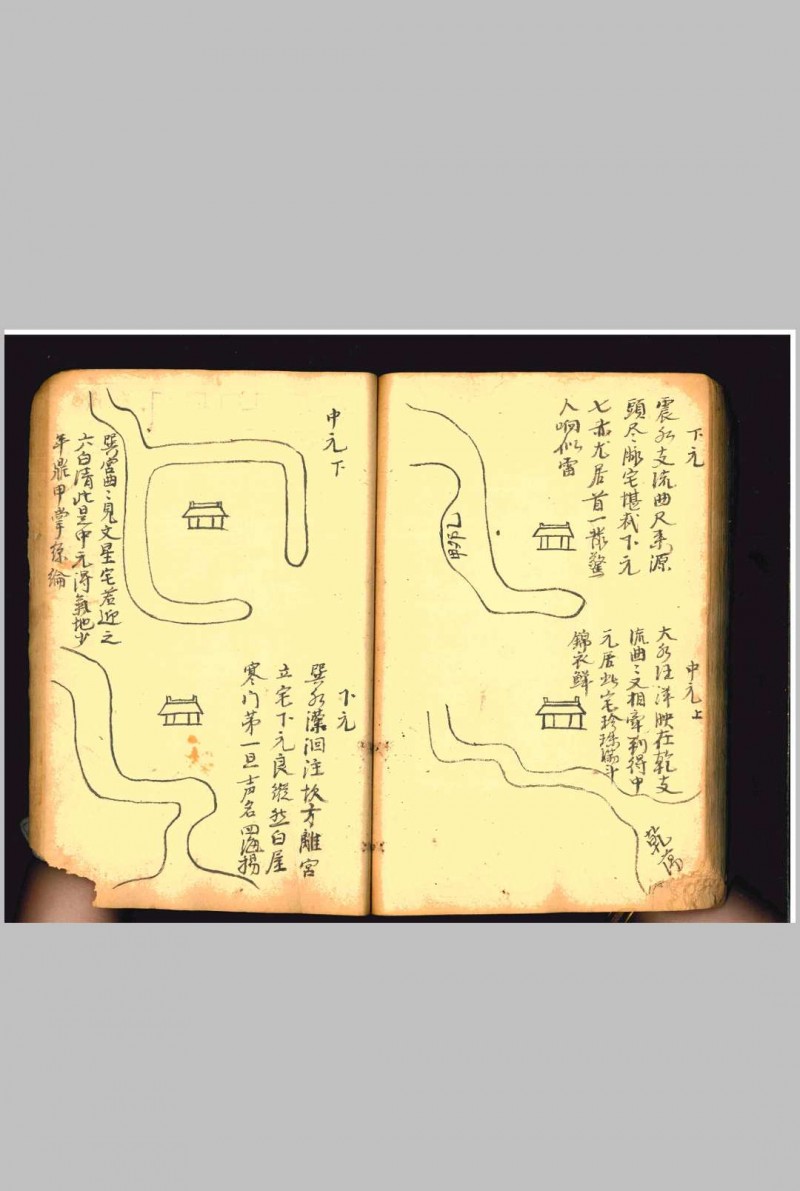 下元
震水支流曲尺来源
頭尽脉宅堪裁下元
七赤尤居首一發驚
人响似雷
甲卯乙
中元上
大水汪洋映在乾支
流曲〻又相牽利得中
元居此宅珍珠滿斗
錦衣鮮
乾
中元下
巽宮曲〻見文星宅若迎之
六白清此是中元得氣地少
年鼎甲掌絲綸
下元
巽水瀠洄注坎方離宮
立宅下元良縱然白屋
寒门第一旦声名四海揚